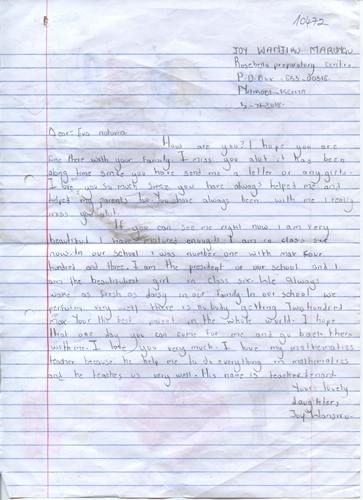 10472
JOY WANJIRU
Rosebella preparatory centre
P.O Box - 653 - 00516
Nairobi - Kenya
Dear: Eva
How are you? I hope you are
fine there with your family. I miss you alot it has been
along time since you have send me a letter or any gifts.
I love you so much since you have always helped me and
helped my parents too. You have always been with me I really
miss you alot.
If you can see me right now I am very
beautiful I have matured enough. I am in class six
now. In our school I was number one with max four
hundred and three. I am the president of our school and I
am the beautifulest girl in class six. We always
wake as fresh as daisy in our family. In our school we
perform very well there is nobody getting Two hundred
max. Your the best parent in the whole world. I hope
that one day you can come for me and go back there
with me. I love you very much. I love my mathematics
teacher because he help me to do everything in mathematics
and he teaches us very well. His name is teacher
Your lovely
daughter,
Joy Wanjiru.